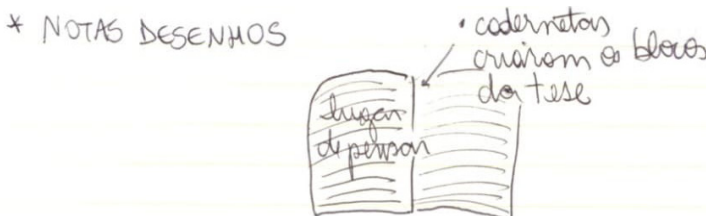 * NOTAS DESENHOS
• cadernetas
criaram os blocos
da tese
lugar
de pensar